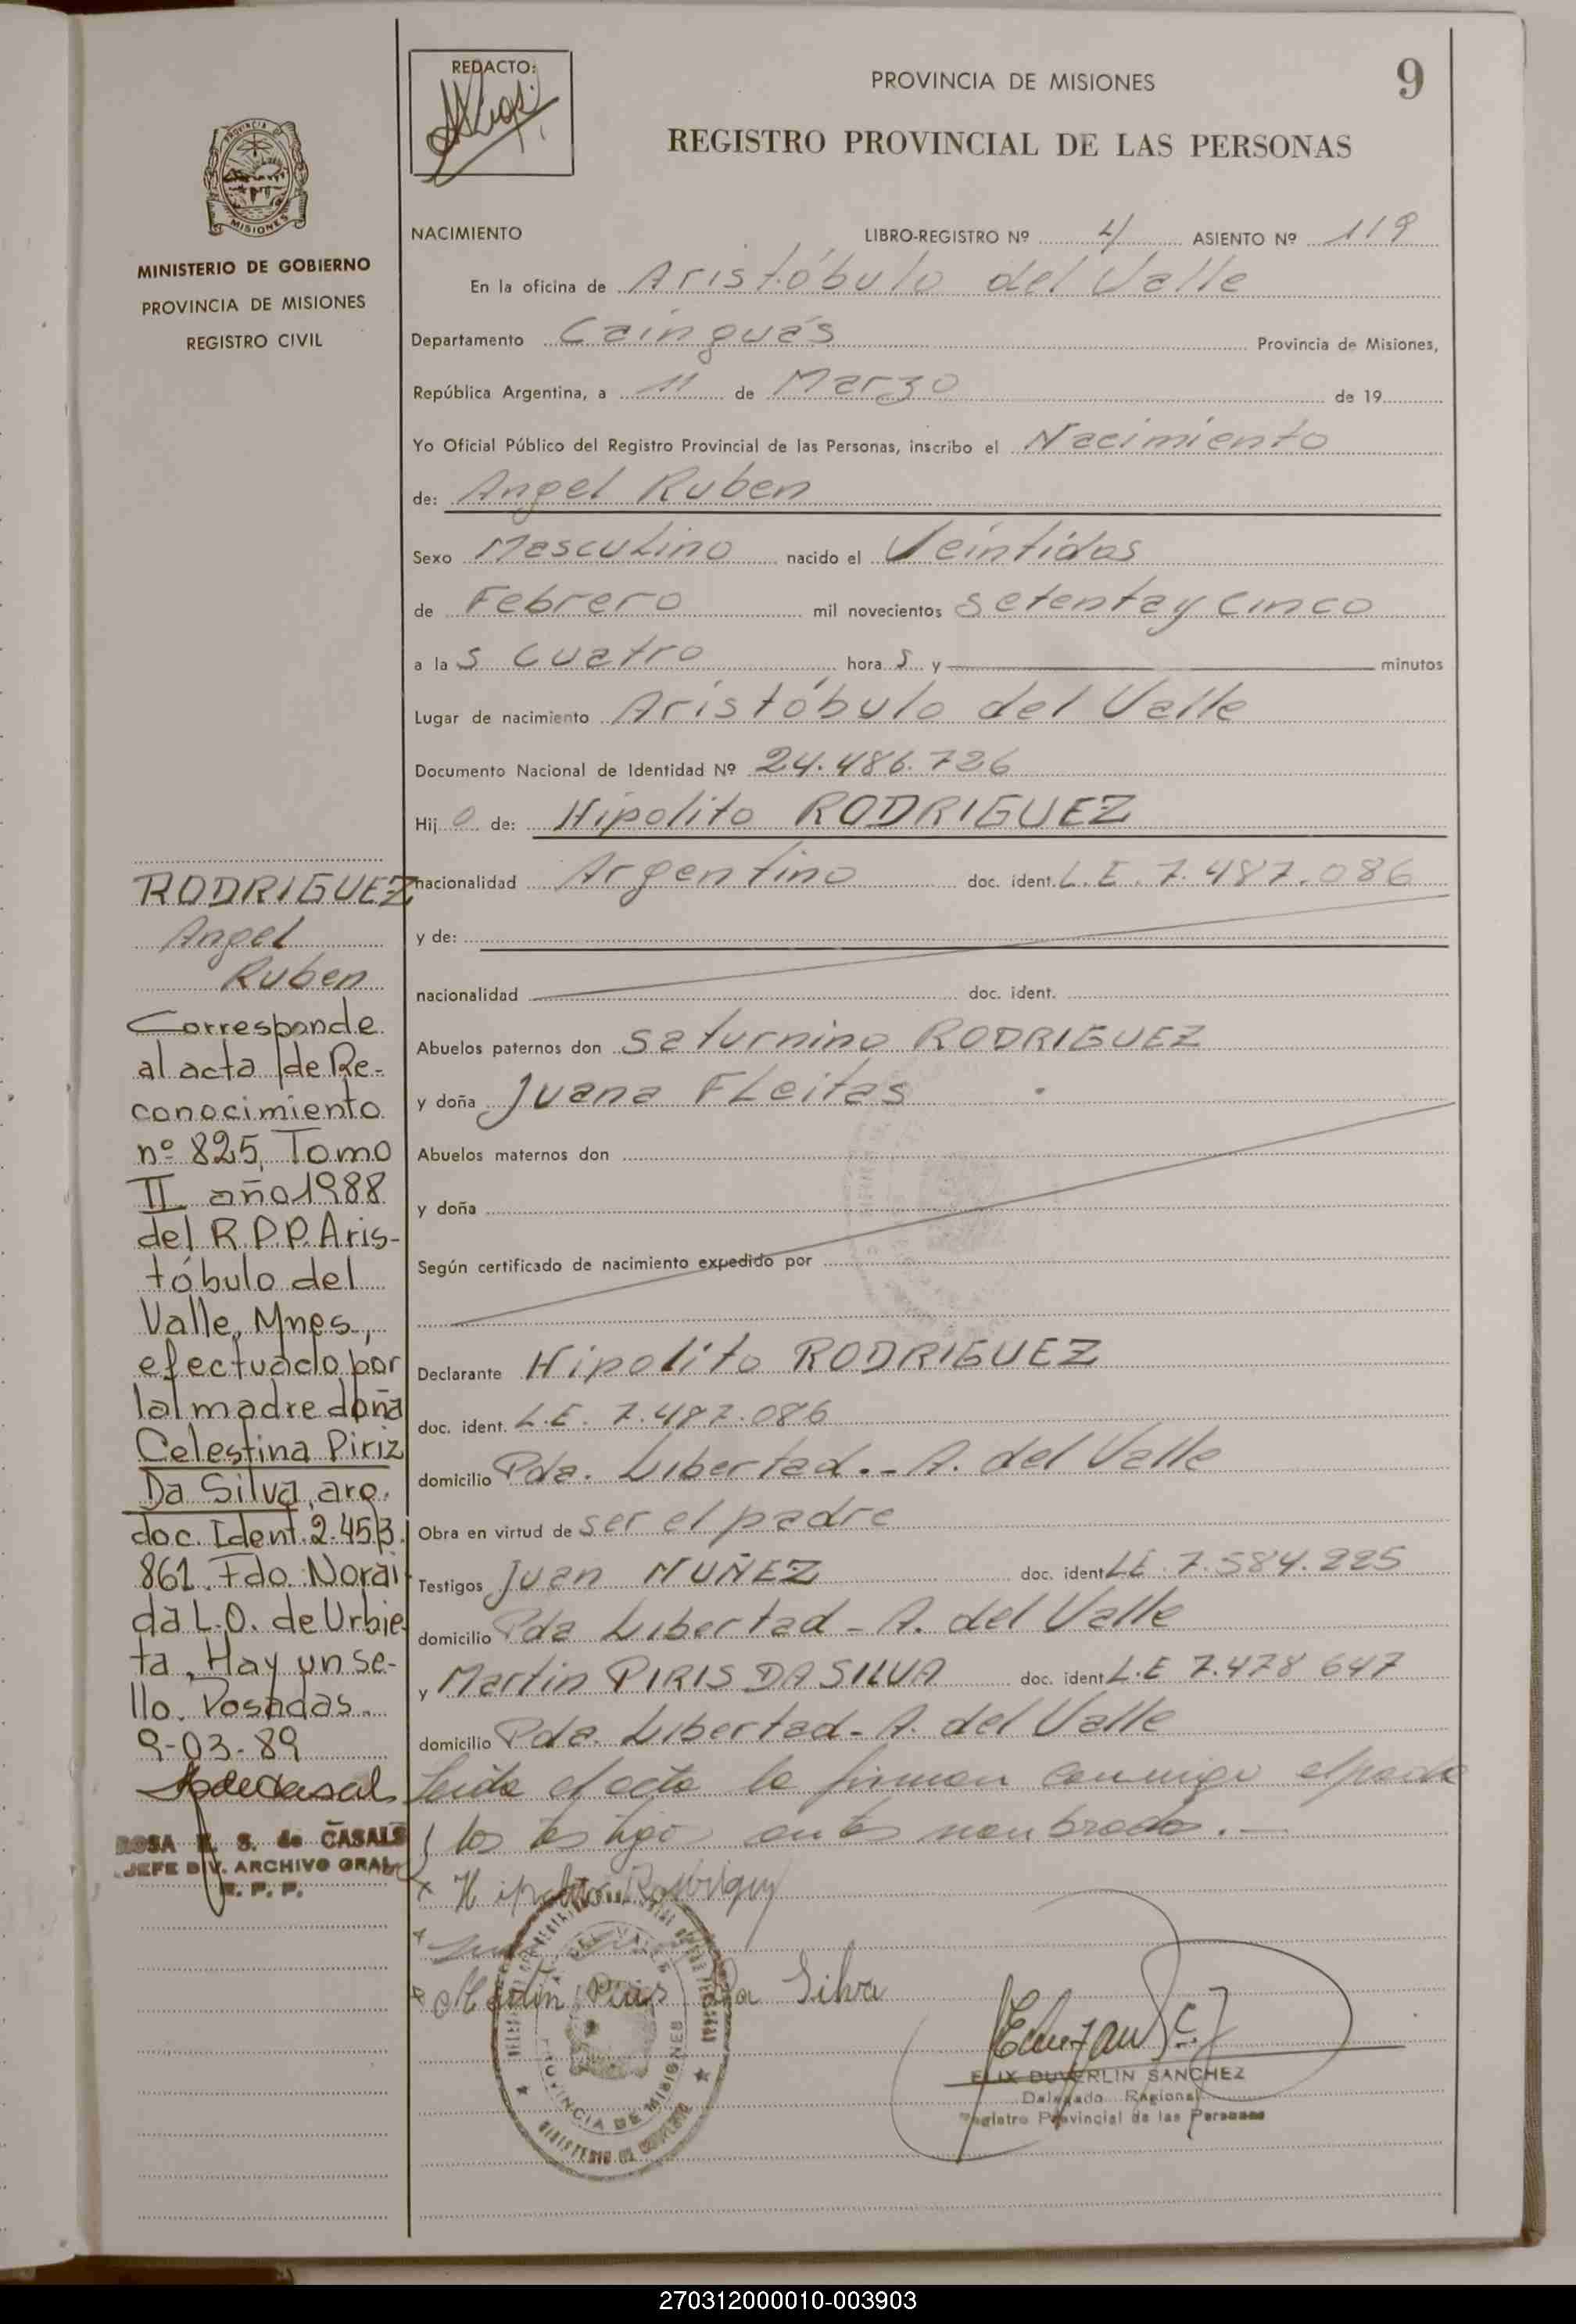 9
REDACTO:
PROVINCIA DE MISIONES
REGISTRO PROVINCIAL DE LAS PERSONAS
PROVINCIA DE MISIONES
MINISTERIO DE GOBIERNO
PROVINCIA DE MISIONES
REGISTRO CIVIL
NACIMIENTO LIBRO-REGISTRO Nº 4 ASIENTO Nº 119
En la oficina de Aristóbulo del Valle
Departamento Cainguás Provincia de Misiones,
República Argentina, a 11 de Marzo de 19
Yo Oficial Público del Registro Provincial de las Personas, inscribo el Nacimiento
de: Angel Ruben
Sexo Masculino nacido el Veintidos
de Febrero mil novecientos setenta y cinco
a la s cuatro hora s y minutos
Lugar de nacimiento Aristóbulo del Valle
Documento Nacional de Identidad Nº 24.486.726
Hij o de: Hipolito RODRIGUEZ
nacionalidad Argentino doc. ident. L.E. 7.487.086
y de:
nacionalidad doc. ident.
Abuelos paternos don Saturnino RODRIGUEZ
y doña Juana FLeitas
Abuelos maternos don
y doña
Según certificado de nacimiento expedido por
Declarante Hipolito RODRIGUEZ
doc. ident. L.E. 7.487.086
domicilio Pda. Libertad.- A. del Valle
Obra en virtud de ser el padre
Testigos Juan NUÑEZ doc. ident L.E. 7.584.225
domicilio Pda Libertad - A. del Valle
y Martin PIRIS DA SILVA doc. ident L.E 7.478 647
domicilio Pda. Libertad - A. del Valle
Leida el acta la firman conmigo el padre
y los testigos antes nombrados.-
x Hipolito Rodriguez
x
x Martin Piris Da Silva
FELIX DUVERLIN SANCHEZ
Delegado Regional
Registro Provincial de las Personas
PROVINCIA DE MISIONES
MINISTERIO DE GOBIERNO
RODRIGUEZ
Angel
Ruben
Corresponde
al acta de Re-
conocimiento
nº 825, Tomo
II año 1988
del R.P.P. Aris-
tóbulo del
Valle, Mnes.,
efectuado por
la madre doña
Celestina Piriz
Da Silva, arg.
doc. Ident. 2.453.
861. Fdo. Norai-
da L.O. de Urbie-
ta. Hay un se-
llo. Posadas.
9-03-89
ROSA E. S. de CASALS
JEFE DIV. ARCHIVO GRAL
R. P. P.
270312000010-003903